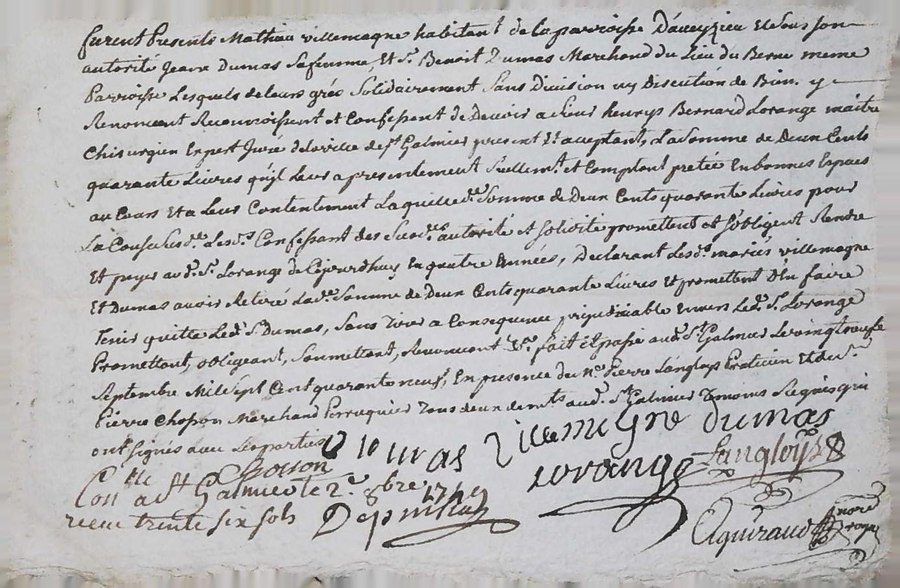 furent Presents Mathieu villemagne habitant de la parroisse D'aveyzieu Et Sous son
autorité Jeane Dumas Safemme, Et Sr. Benoit Dumas Marchand du Lieu du Berne meme
Parroisse Lesquels de leurs gréz Solidairement Sans Division ny Discution de Bien. y
Renoncent Reconnoissent et Confessent de Devoir a Sieur henrys Bernard Lorange maitre
Chirurgien Expert Juré delaville de St. Galmier present Et acceptant, La Somme de Deux Cents
quarante Livres qu'il Leur a presentement Reellemt. et Comptant pretée En bonnes Espèces
au Cours Et a Leur Contentement Laquelle de. Somme de Deux Cents quarante Livres pour
La Cause Susde. Lesds. Confessant des Susdes. autorité et Solidité promettent et S'obligent Rendre
Et payer aud. Sr. Lorange de Cejourdhuy En quatre Années, Declarant Lesds. mariés villemagne
Et Dumas avoir Retiré Lade. Somme de Deux Cents quarante Livres Et promettent D'En faire
Tenir quitte Led. Sr. Dumas, Sans tirer a Consequence prejudiciable Envers Led. Sr. Lorange
Promettant, obligeant, Soumettant, Renoncant &a. fait Et passé aud. St. Galmier Le vingt
Septembre Mil Sept Cent quarante neuf, En presence de Me. Pierre Langlois Praticien Et de Sr.
Pierre Chopon Marchand Perruquier Tous deux demts. aud. St. Galmier Temoins Signés qui
ont Signés avec Les parties
Dumas villemagne dumas
Chopon Lorange Langloys
Conlle a St Galmier le 2e. 8bre 1749
receu trente six sols
Aguiraud nore royal